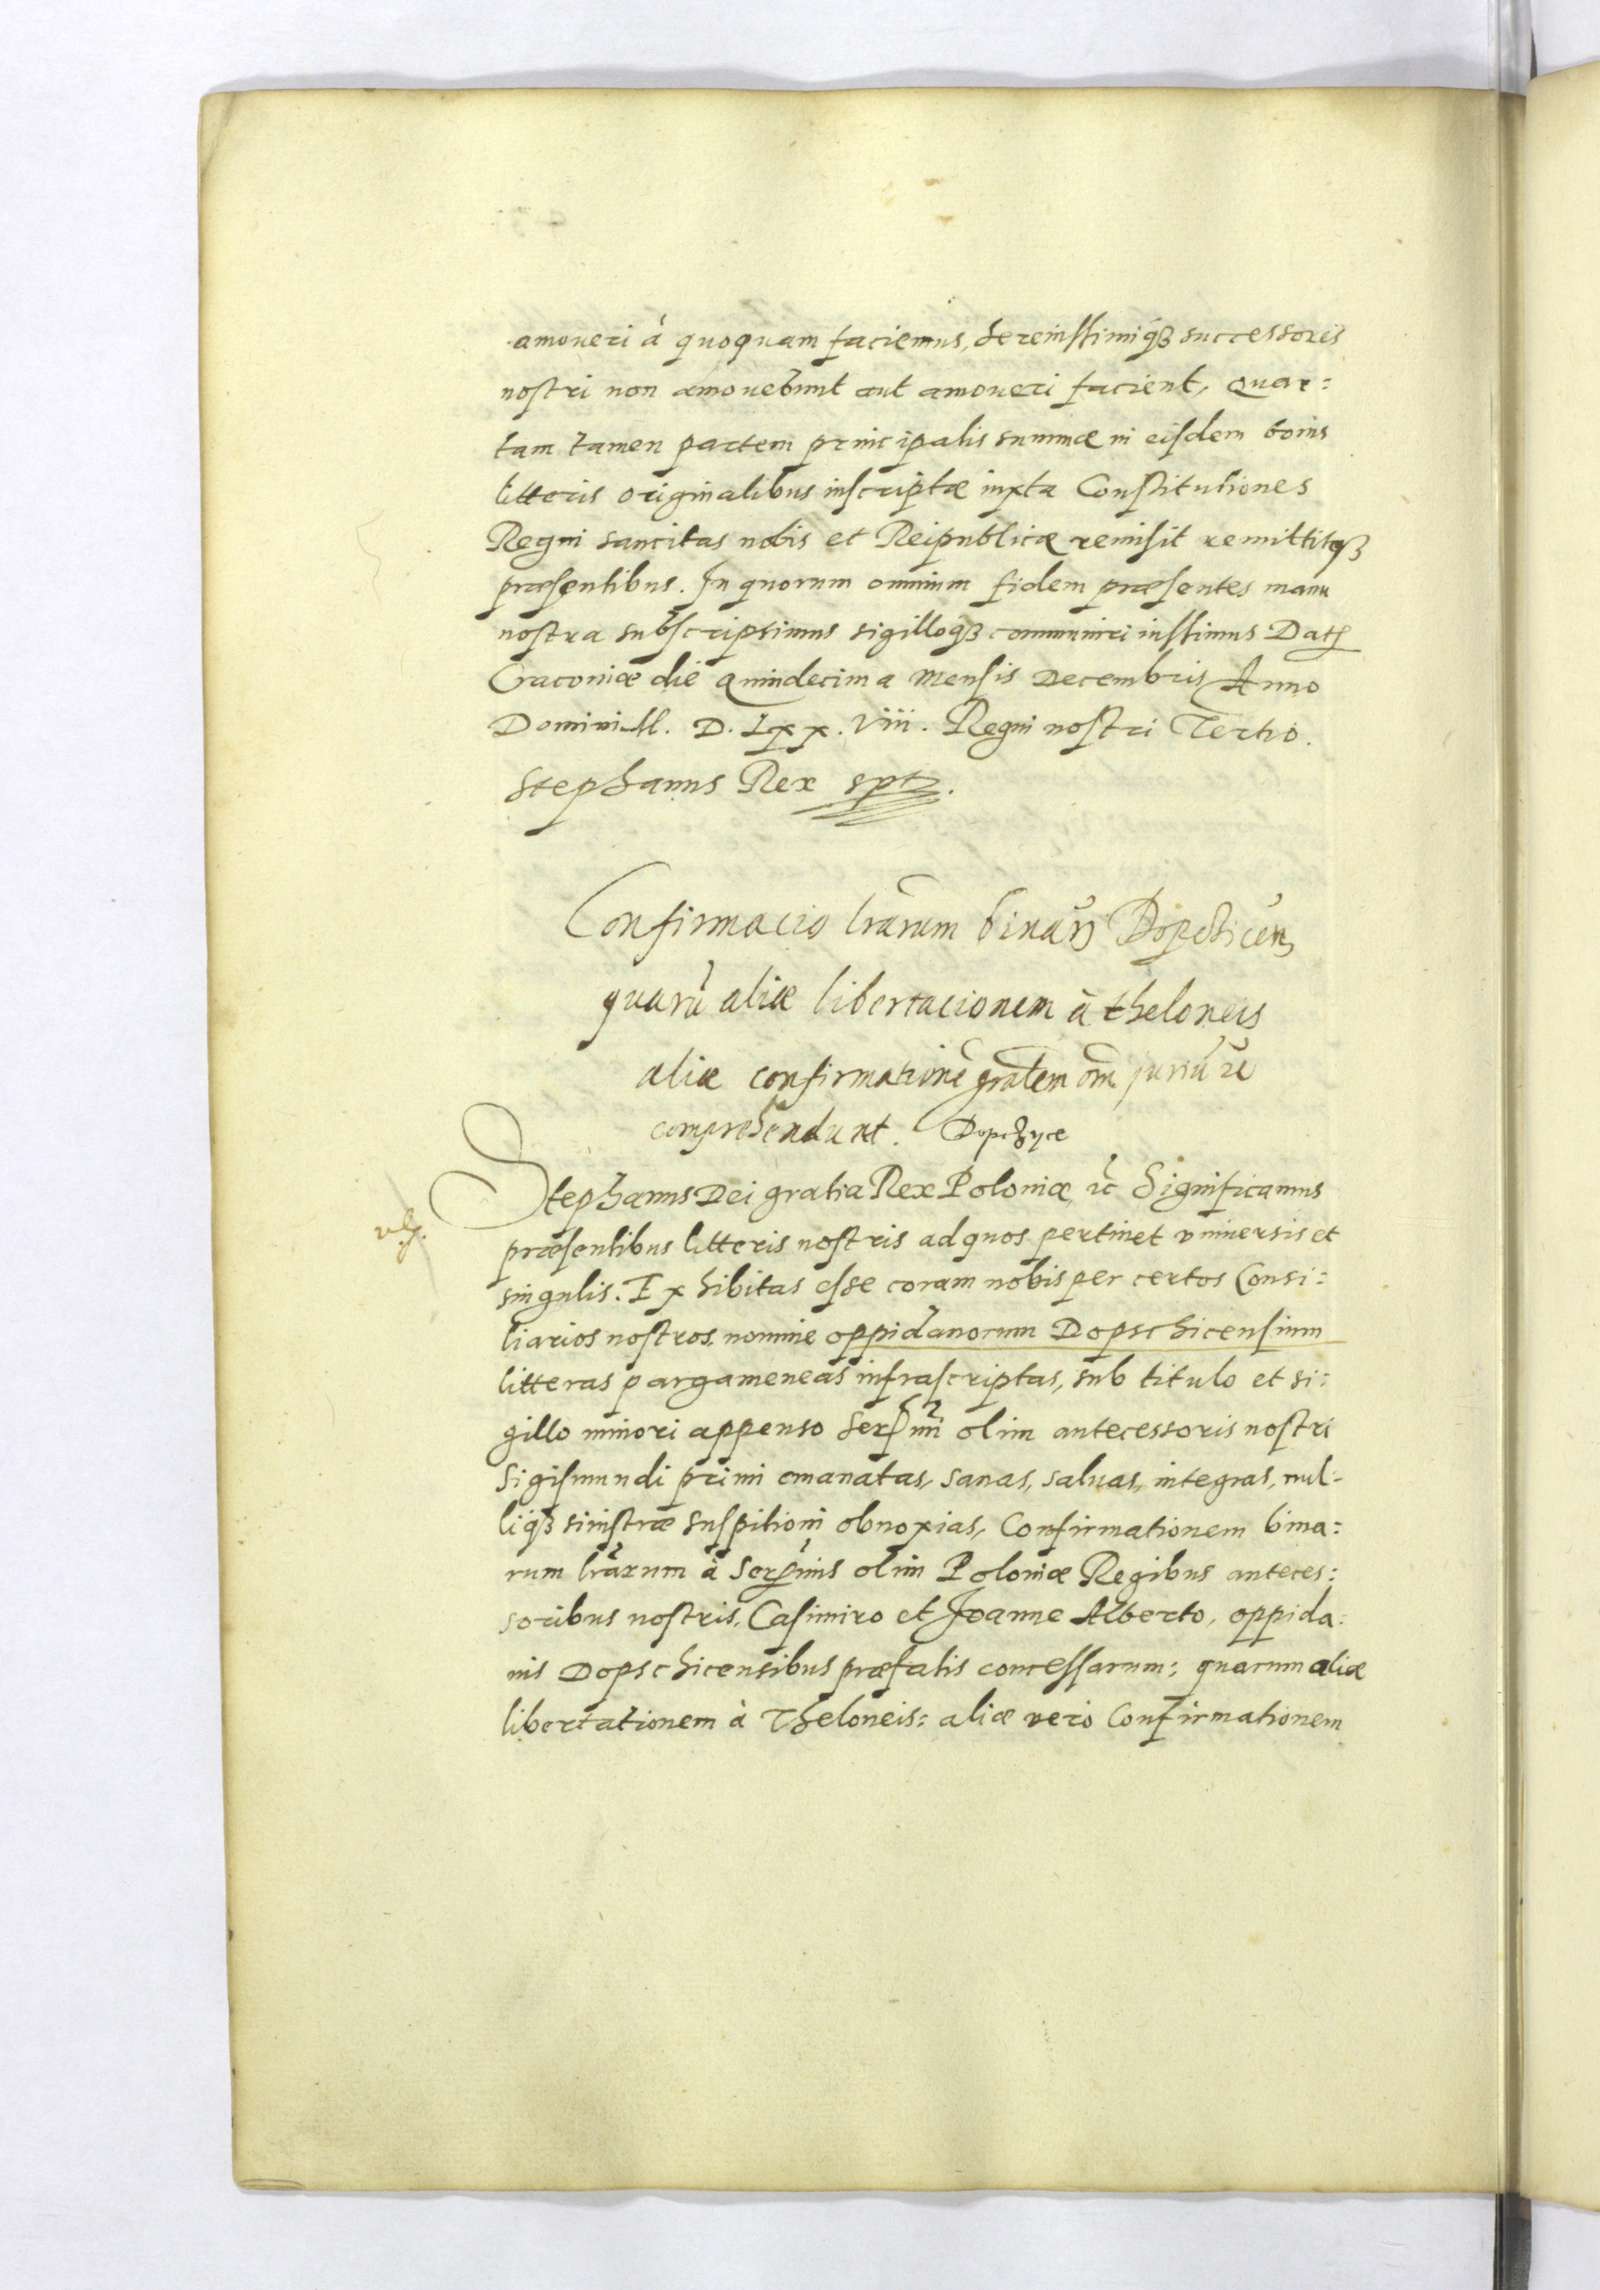 amoveri à quoquam faciemus, Sereniſſimiq3 successores
noſtri non amovebunt aut amoveri facient, Quar:
tam tamen partem principalis summæ in eiſdem bonis
litteris originalibus inſcriptæ iuxta Conſtitutiones
Regni sancitas nobis et Reipublicæ remiſit remittitq3
præſentibus. In quorum omnium fidem præſentes manu
noſtra subſcripsimus sigilloq3 communiri iuſſimus Dat
Cracoviæ die quindecima Menſis Decembris Anno
Domini M. D. Lxx. viii. Regni noſtri Tertio.
Stephanus Rex spt
Confirmacio lrarum binar Dopcticen
quarũ aliæ libertacionem à theloneis
aliæ confirmationẽ gralem om̃ juriũ
comprehendunt. Dopczyce
Stephanus Dei gratia Rex Poloniæ, ꝛc̃ Significamus
præſentibus litteris noſtris ad quos pertinet vniuersis et
singulis. Exhibitas eſse coram nobis per certos Consi:
liarios noſtros, nomine oppidanorum Dopschicenſium
litteras pargameneas infraſcriptas, sub titulo et si:
gillo minori appenso Serſmi olim antecessoris noſtri
Sigiſmundi primi emanatas, sanas, saluas, integras, nul-
liq3 siniſtræ suſpitioni obnoxias, Confirmationem bina:
rum lrarum à Sermis olim Poloniæ Regibus anteces:
soribus noſtris, Casimiro et Joanne Alberto, oppida:
nis Dopschicensibus præfatis conceſſarum: quarum aliæ
libertationem à Theloneis: aliæ vero Confirmationem